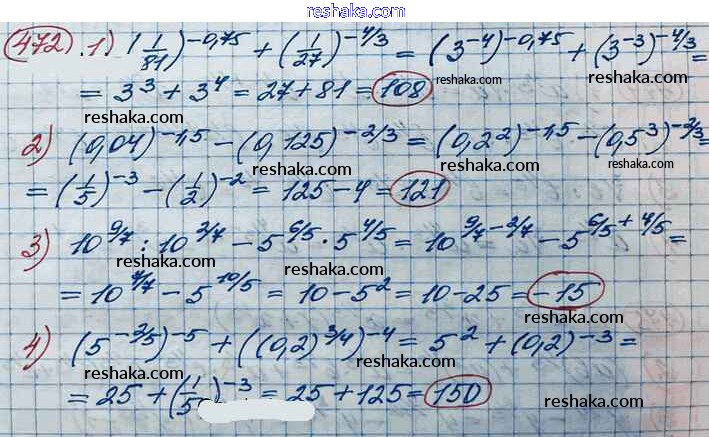 reshaka.com
472. 1) (1/81)^-0,75 + (1/27)^-4/3 = (3^-4)^-0,75 + (3^-3)^-4/3 =
reshaka.com reshaka.com
= 3^3 + 3^4 = 27 + 81 = 108
reshaka.com
2) (0,04)^-1,5 - (0,125)^-2/3 = (0,2^2)^-1,5 - (0,5^3)^-2/3 =
reshaka.com reshaka.com
= (1/5)^-3 - (1/2)^-2 = 125 - 4 = 121
reshaka.com
3) 10^9/7 : 10^2/7 - 5^6/5 · 5^4/5 = 10^9/7-2/7 - 5^6/5+4/5 =
reshaka.com reshaka.com
= 10^7/7 - 5^10/5 = 10 - 5^2 = 10 - 25 = -15
reshaka.com
4) (5^-2/5)^-5 + ((0,2)^3/4)^-4 = 5^2 + (0,2)^-3 =
reshaka.com reshaka.com
= 25 + (1/5)^-3 = 25 + 125 = 150
reshaka.com